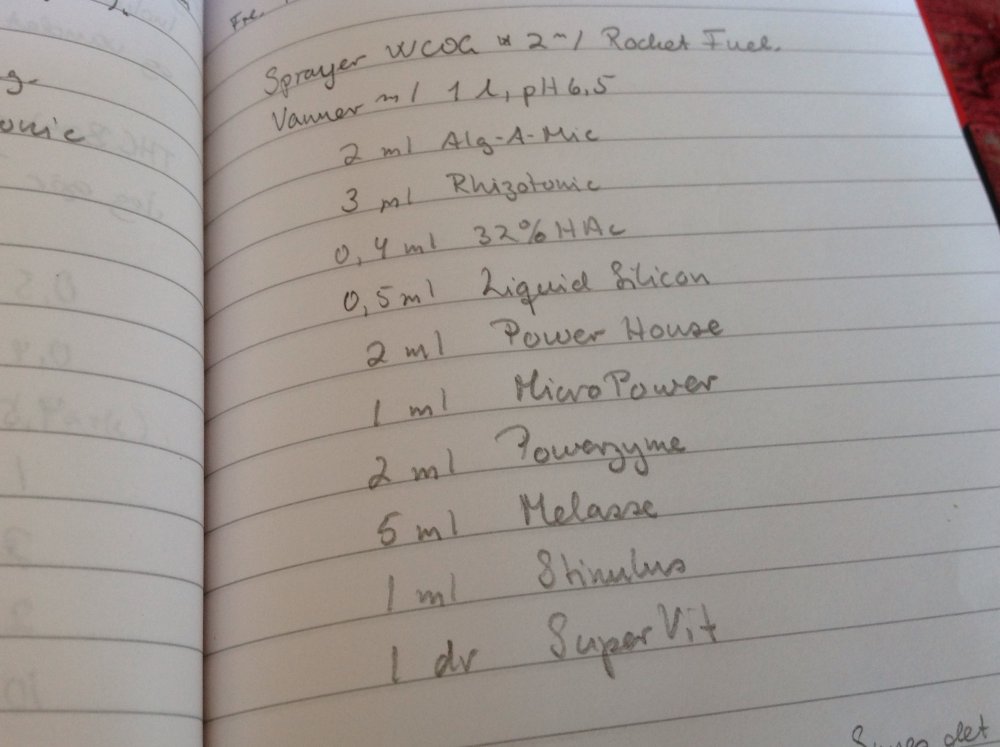 Fre.
Sprayer WCOG 2 ml Rocket Fuel.
Vanner m/ 1 l, pH 6,5
2 ml Alg-A-Mic
3 ml Rhizotonic
0,4 ml 32% HAc
0,5 ml Liquid Silicon
2 ml Power House
1 ml MicroPower
2 ml Powerzyme
5 ml Melasse
1 ml Stimulus
1 dr SuperVit
det